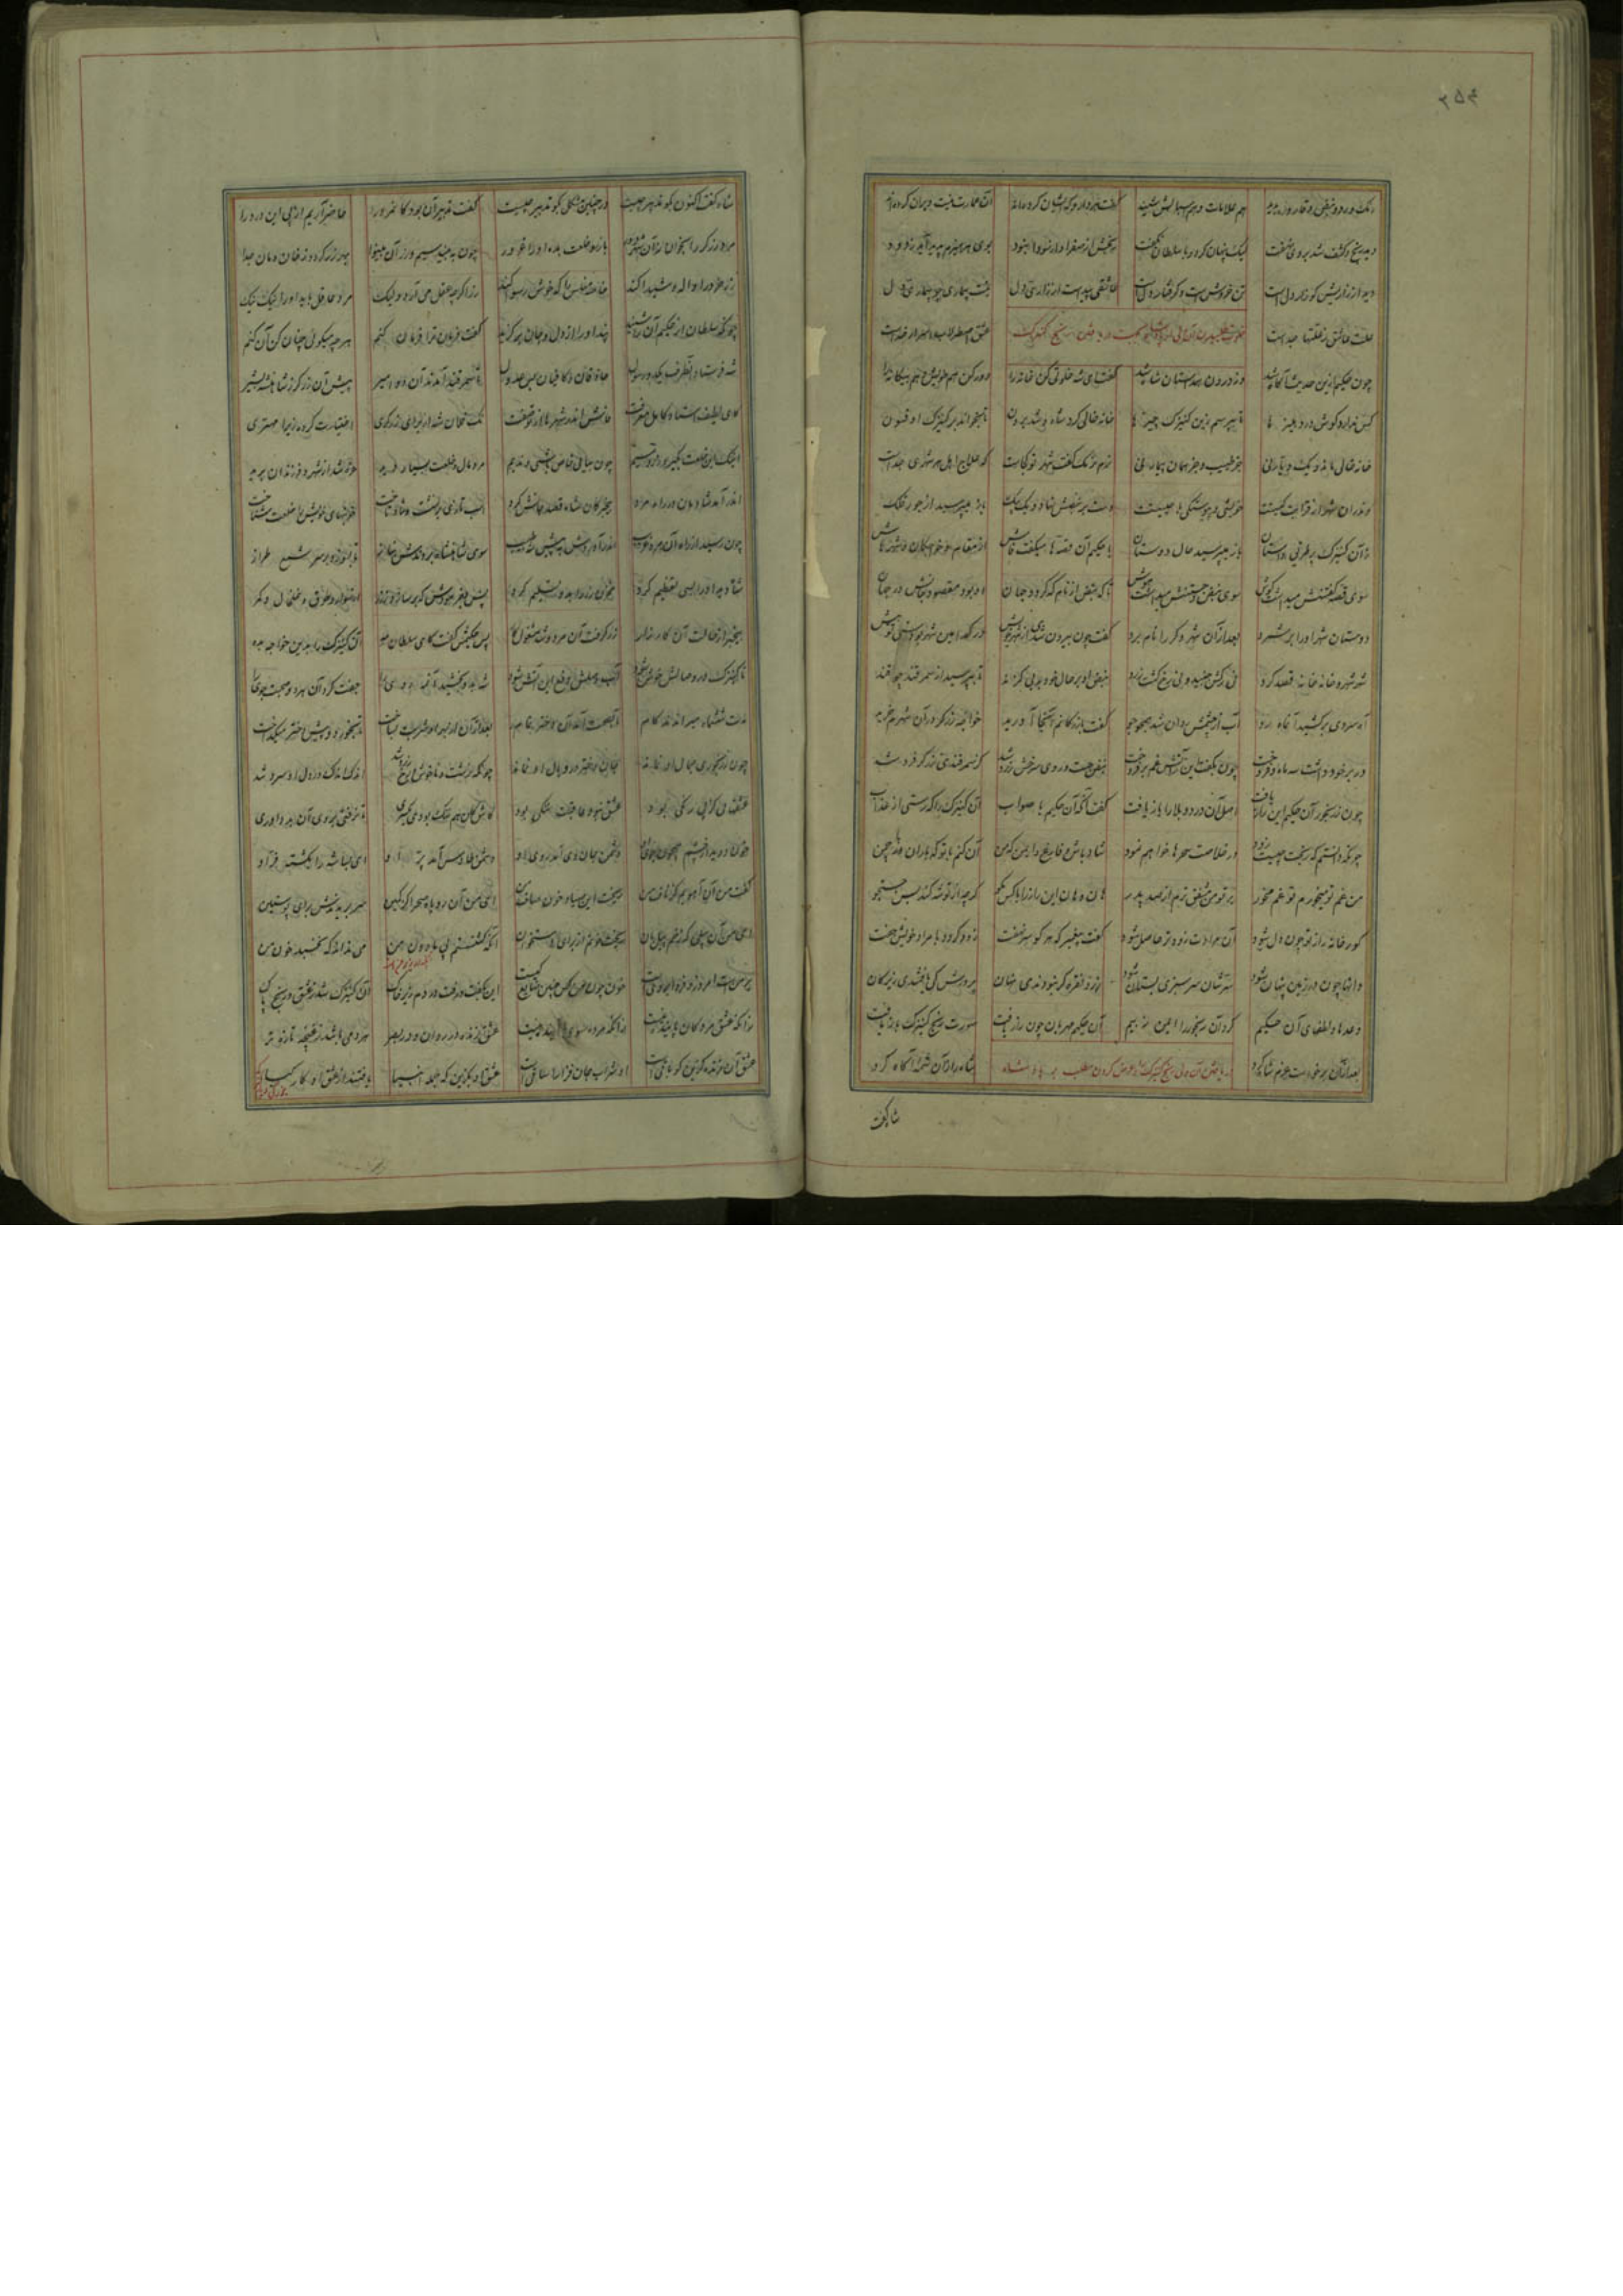 ۲۵۴
رنگ و رو و نبض و قاروره بدید هم علامات و هم اسبابش شنید گفت هر دارو که ایشان کرده‌اند آن عمارت نیست ویران کرده‌اند
دید رنج و کشف شد بر وی نهفت لیک پنهان کرد و با سلطان نگفت رنجش از صفرا و از سودا نبود بوی هر هیزم پدید آید ز دود
دید از زاریش کو زار دل است تن خوش است و گرفتار دل است عاشقی پیداست از زاری دل نیست بیماری چو بیماری دل
علت عاشق ز علتها جداست خلوت طلبیدن آن ولی از پادشاه جهت دریافتن رنج کنیزک عشق اصطرلاب اسرار خداست
چون حکیم از این حدیث آگاه شد وز درون همداستان شاه شد گفت ای شه خلوتی کن خانه را دور کن هم خویش و هم بیگانه را
کس ندارد گوش در دهلیزها تا بپرسم زین کنیزک چیزها خانه خالی کرد شاه و شد برون تا بخواند بر کنیزک او فسون
خانه خالی ماند و یک دیار نی جز طبیب و جز همان بیمار نی نرم نرمک گفت شهر تو کجاست که علاج اهل هر شهری جداست
وندران شهر از قرابت کیستت خویشی و پیوستگی با چیستت دست بر نبضش نهاد و یک بیک باز میپرسید از جور فلک
زان کنیزک بر طریق داستان باز میپرسید حال دوستان با حکیم آن قصه‌ها میگفت فاش از مقام و خواجگان و شهرهاش
سوی قصه گفتنش میداشت گوش سوی نبض و جستنش میداشت هوش تا که نبض از نام که گردد جهان او بود مقصود جانش در جهان
دوستان شهر او را بر شمرد بعد از آن شهر دگر را نام برد گفت چون بیرون شدی از شهر خویش در کدامین شهر بودستی تو پیش
شهر شهر و خانه خانه قصه کرد نی رگش جنبید و نی رخ گشت زرد نبض او بر حال خود بد بی گزند تا بپرسید از سمرقند چو قند
آه سردی برکشید آن ماه رو آب از چشمش روان شد همچو جو گفت بازرگانم آنجا آورید خواجه زرگر در آن شهرم خرید
در بر خود داشت سه ماه و فروخت چون بگفت این ز آتش غم برفروخت نبض جست و روی سرخش زرد شد کز سمرقندی زرگر فرد شد
چون ز رنجور آن حکیم این راز یافت اصل آن درد و بلا را باز یافت گفت آنگه آن حکیم با صواب آن کنیزک را که رستی از عذاب
چونکه دانستم که رنجت چیست زود در خلاصت سحرها خواهم نمود شاد باش و فارغ و ایمن که من آن کنم با تو که باران با چمن
من غم تو میخورم تو غم مخور بر تو من مشفق ترم از صد پدر هان و هان این راز را با کس مگو گرچه از تو شه کند بس جستجو
گورخانه راز تو چون دل شود آن مرادت زود تر حاصل شود گفت پیغمبر که هر کو سر نهفت زود گردد با مراد خویش جفت
دانها چون در زمین پنهان شود سرشان سرسبزی بستان شود زر و نقره گر نبودندی نهان پرورش کی یافتندی زیر کان
وعده‌ها و لطفهای آن حکیم کرد آن رنجور را ایمن ز بیم آن حکیم مهربان چون راز یافت صورت رنج کنیزک باز یافت
بعد از آن برخواست عزم شاه کرد دریافتن آن ولی رنج کنیزک را و عرض کردن مطلب بر پادشاه شاه را زان شمه آگاه کرد
شاه گفت
شاه گفت اکنون بگو تدبیر چیست در چنین مشکل بگو تدبیر چیست گفت تدبیر آن بود کان مرد را حاضر آریم از پی این درد را
مرد زرگر را بخوان زان شهر دور با زر و خلعت بده او را غرور چون ببیند سیم و زر آن بینوا بهر زر گردد ز خان و مان جدا
زر خرد را واله و شیدا کند خاصه مفلس را که خوش رسوا کند زر اگرچه عقل می آرد ولیک مرد عاقل باید او را نیک نیک
چونکه سلطان از حکیم آن را شنید پند او را از دل و جان برگزید گفت فرمان ترا فرمان کنم هرچه میگوئی چنان کن آن کنم
شه فرستاد آنطرف یکدو رسول حاذقان و کافیان بس عدول تا سمرقند آمدند آن دو امیر پیش آن زرگر ز شاهنشه بشیر
کای لطیف استاد کامل معرفت فاش اندر شهرها از تو صفت نک فلان شه از برای زرگری اختیارت کرد زیرا مهتری
اینک این خلعت بگیر و زر و سیم چون بیائی خاص باشی و ندیم مرد مال و خلعت بسیار دید غره شد از شهر و فرزندان برید
اندر آمد شادمان در راه مرد بیخبر کان شاه قصد جانش کرد اسب تازی برنشست و شاد تاخت خونبهای خویش را خلعت شناخت
چون رسید از راه آن مرد غریب اندر آوردش به پیش شه طبیب سوی شاهنشاه بردندش بناز تا بسوزد بر سر شمع طراز
شاه دید او را بسی تعظیم کرد مخزن زر را بدو تسلیم کرد پس بفرمودش که بر سازد ز زر از سوار و طوق و خلخال و کمر
زر گرفت آن مرد و شد مشغول کار بیخبر از حالت آن کارزار پس حکیمش گفت کای سلطان مه آن کنیزک را بدین خواجه بده
تا کنیزک در وصالش خوش شود آب وصلش دفع این آتش شود شه بدو بخشید آن مه روی را جفت کرد آن هر دو صحبت جوی را
مدت ششماه میراندند کام تا بصحت آمد آن دختر تمام بعد از آن از بهر او شربت بساخت تا بخورد و پیش دختر میگداخت
چون ز رنجوری جمال او نماند جان دختر در وبال او نماند چونکه زشت و ناخوش و رخ زرد شد اندک اندک در دل او سرد شد
عشقهای کز پی رنگی بود عشق نبود عاقبت ننگی بود کاش کان هم ننگ بودی یکسری تا نرفتی بر وی آن بد داوری
خون دوید از چشم همچون جوی او دشمن جان وی آمد روی او دشمن طاوس آمد پر او ای بسا شه را بکشته فر او
گفت من آن آهوم کز ناف من ریخت این صیاد خون صاف من ای من آن روباه صحرا کز کمین سر بریدندش برای پوستین
ای من آن پیلی که زخم پیلبان ریخت خونم از برای استخوان آنکه کشتستم پی مادون من می نداند که نخسبد خون من
بر من است امروز و فردا بر وی است خون چون من کس چنین ضایع کیست این بگفت و رفت در دم زیر خاک آن کنیزک شد ز عشق و رنج پاک
زانکه عشق مردگان پاینده نیست زانکه مرده سوی ما آینده نیست عشق زنده در روان و در بصر هر دمی باشد ز غنچه تازه تر
عشق آن زنده گزین کو باقی است و از شراب جان فزایت ساقی است عشق او بگزین که جمله انبیا یافتند از عشق او کار و کیا